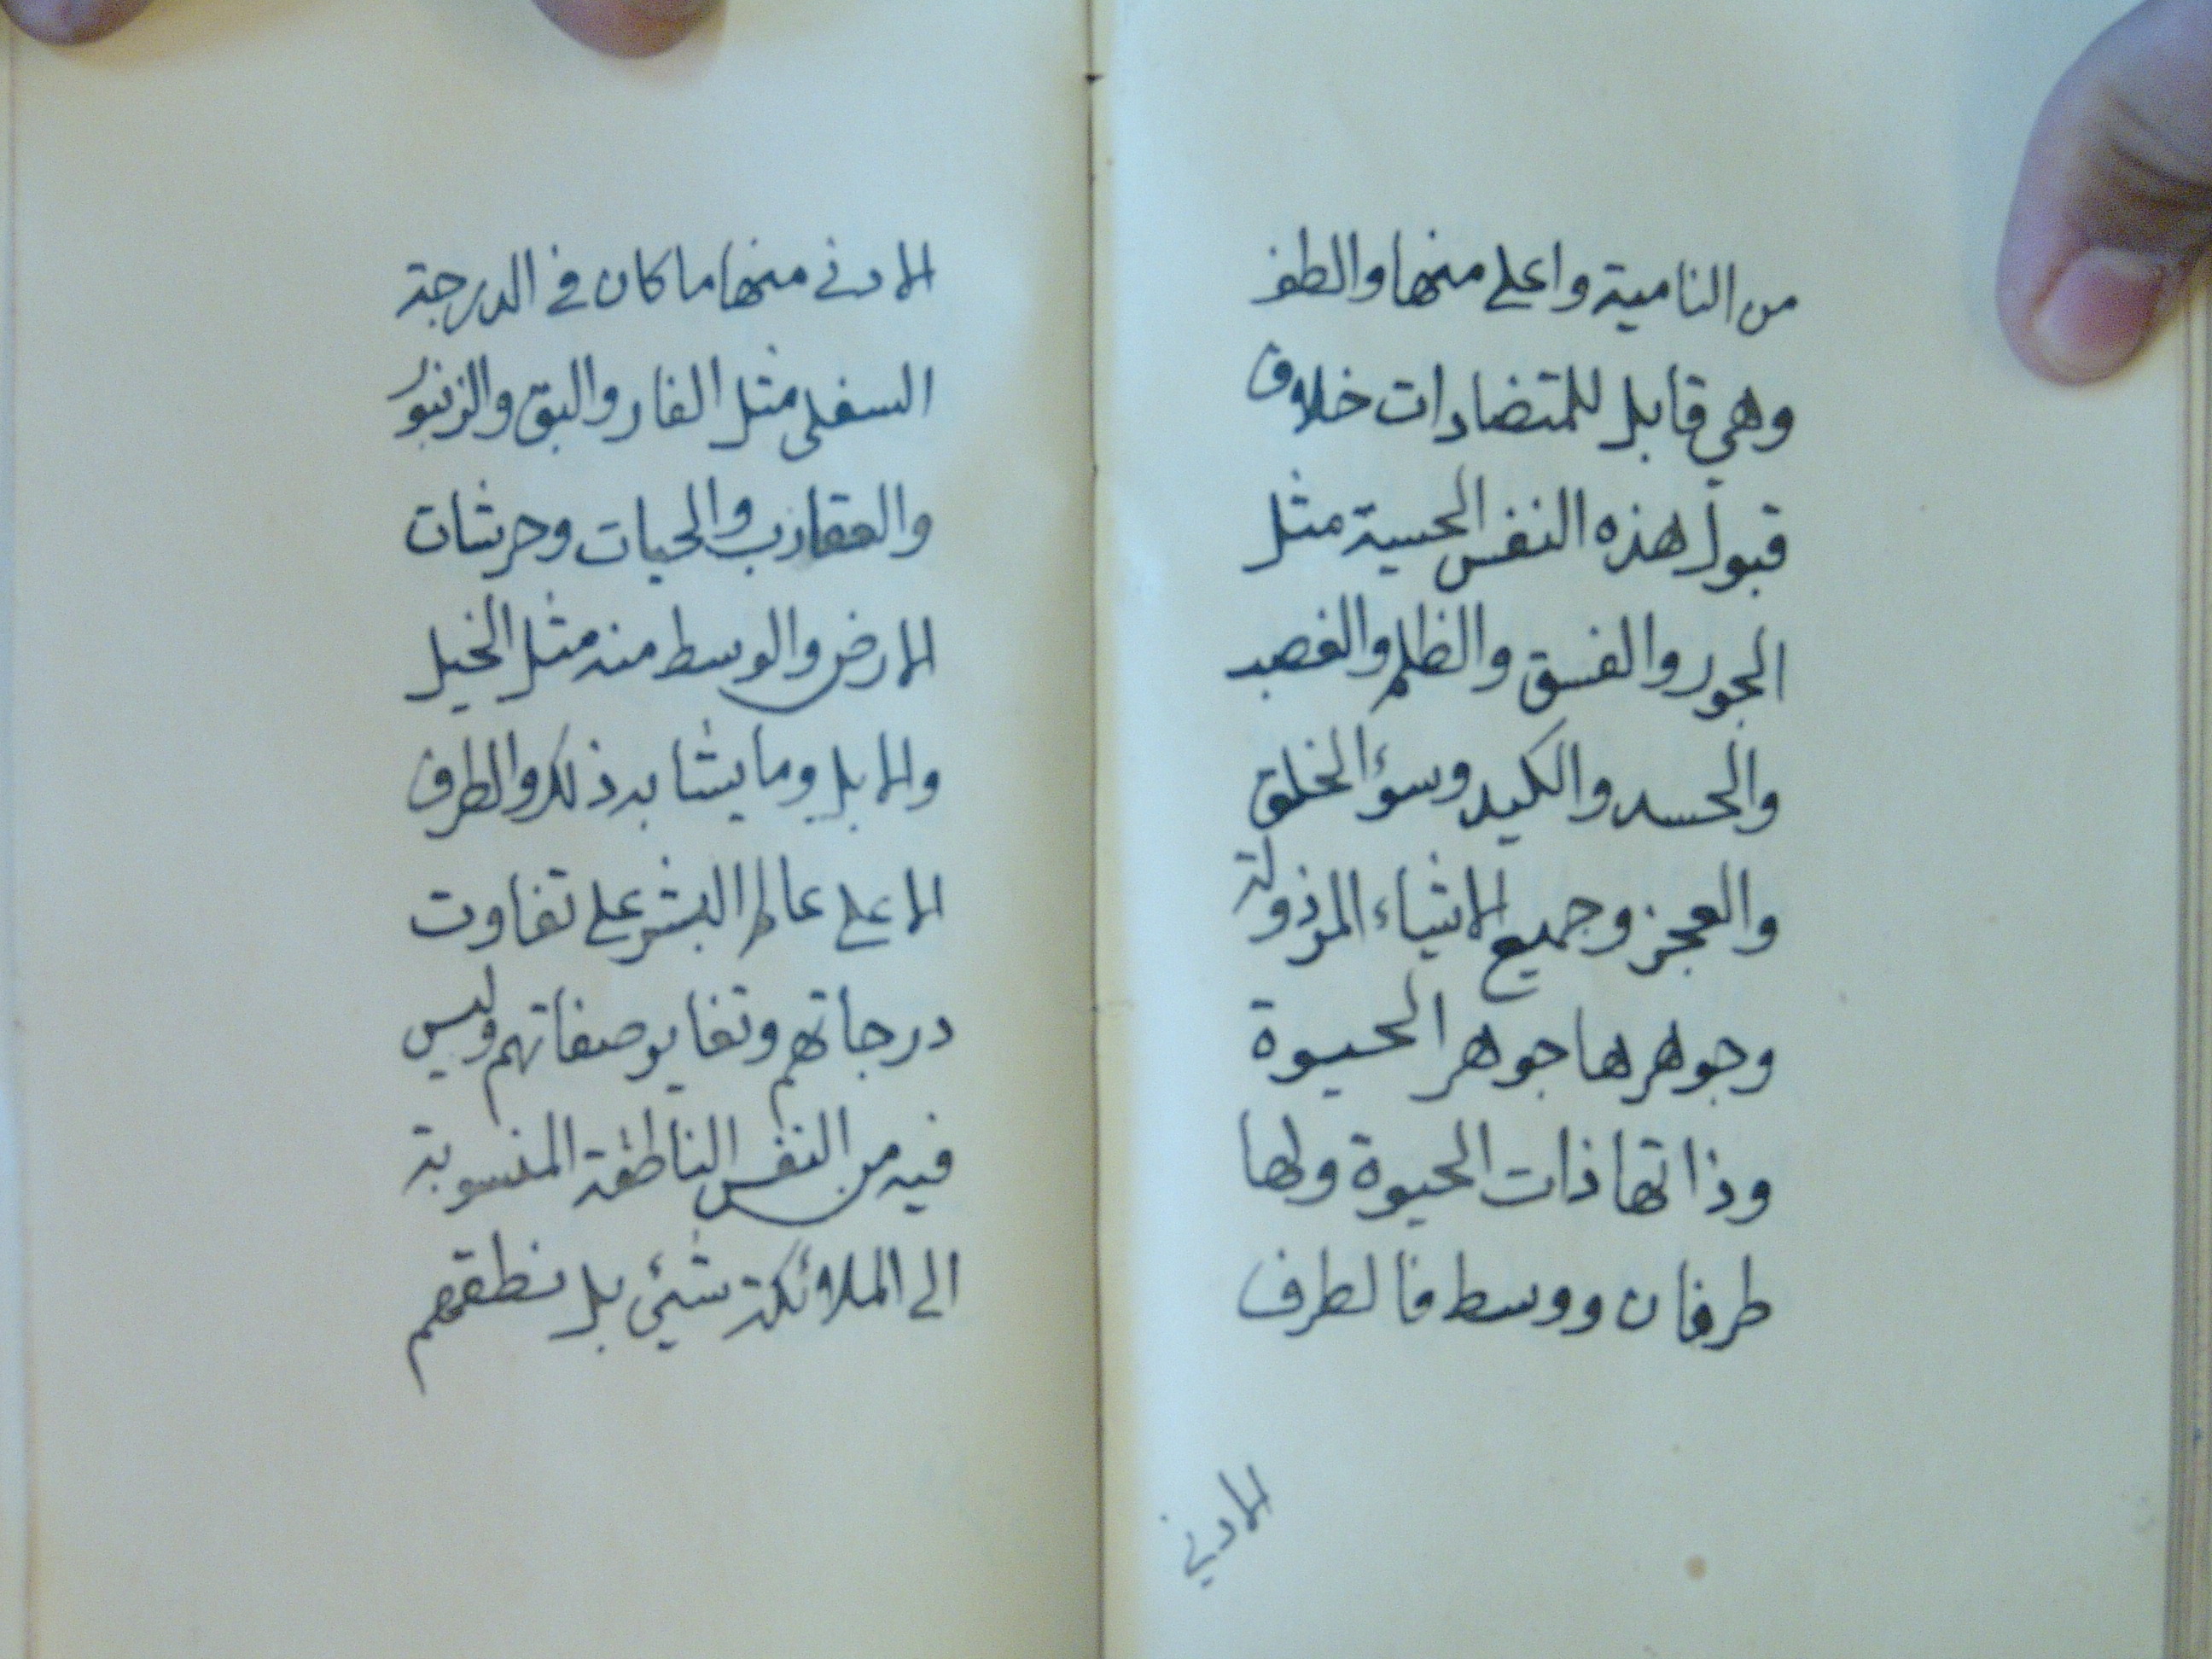 من النامية واعلى منها والطف
وهي قابل للمتضادات خلاف
قبول هذه النفس الحسية مثل
الجور والفسق والظلم والغصب
والحسد والكيد وسؤ الخلق
والعجز وجميع الاشياء المرذولة
وجوهرها جوهر الحيوة
وذاتها ذات الحيوة ولها
طرفان ووسط فالطرف
الادني
الادنى منها ما كان في الدرجة
السفلى مثل الفار والبق والزنبور
والعقارب والحيات وحرشات
الارض والوسط منه مثل الخيل
والابل وما يشابه ذلك والطرف
الاعلى عالم البشر على تفاوت
درجاتهم وتغاير صفاتهم وليس
فيه من النفس الناطقة المنسوبة
الى الملائكة شيئ بل نطقهم